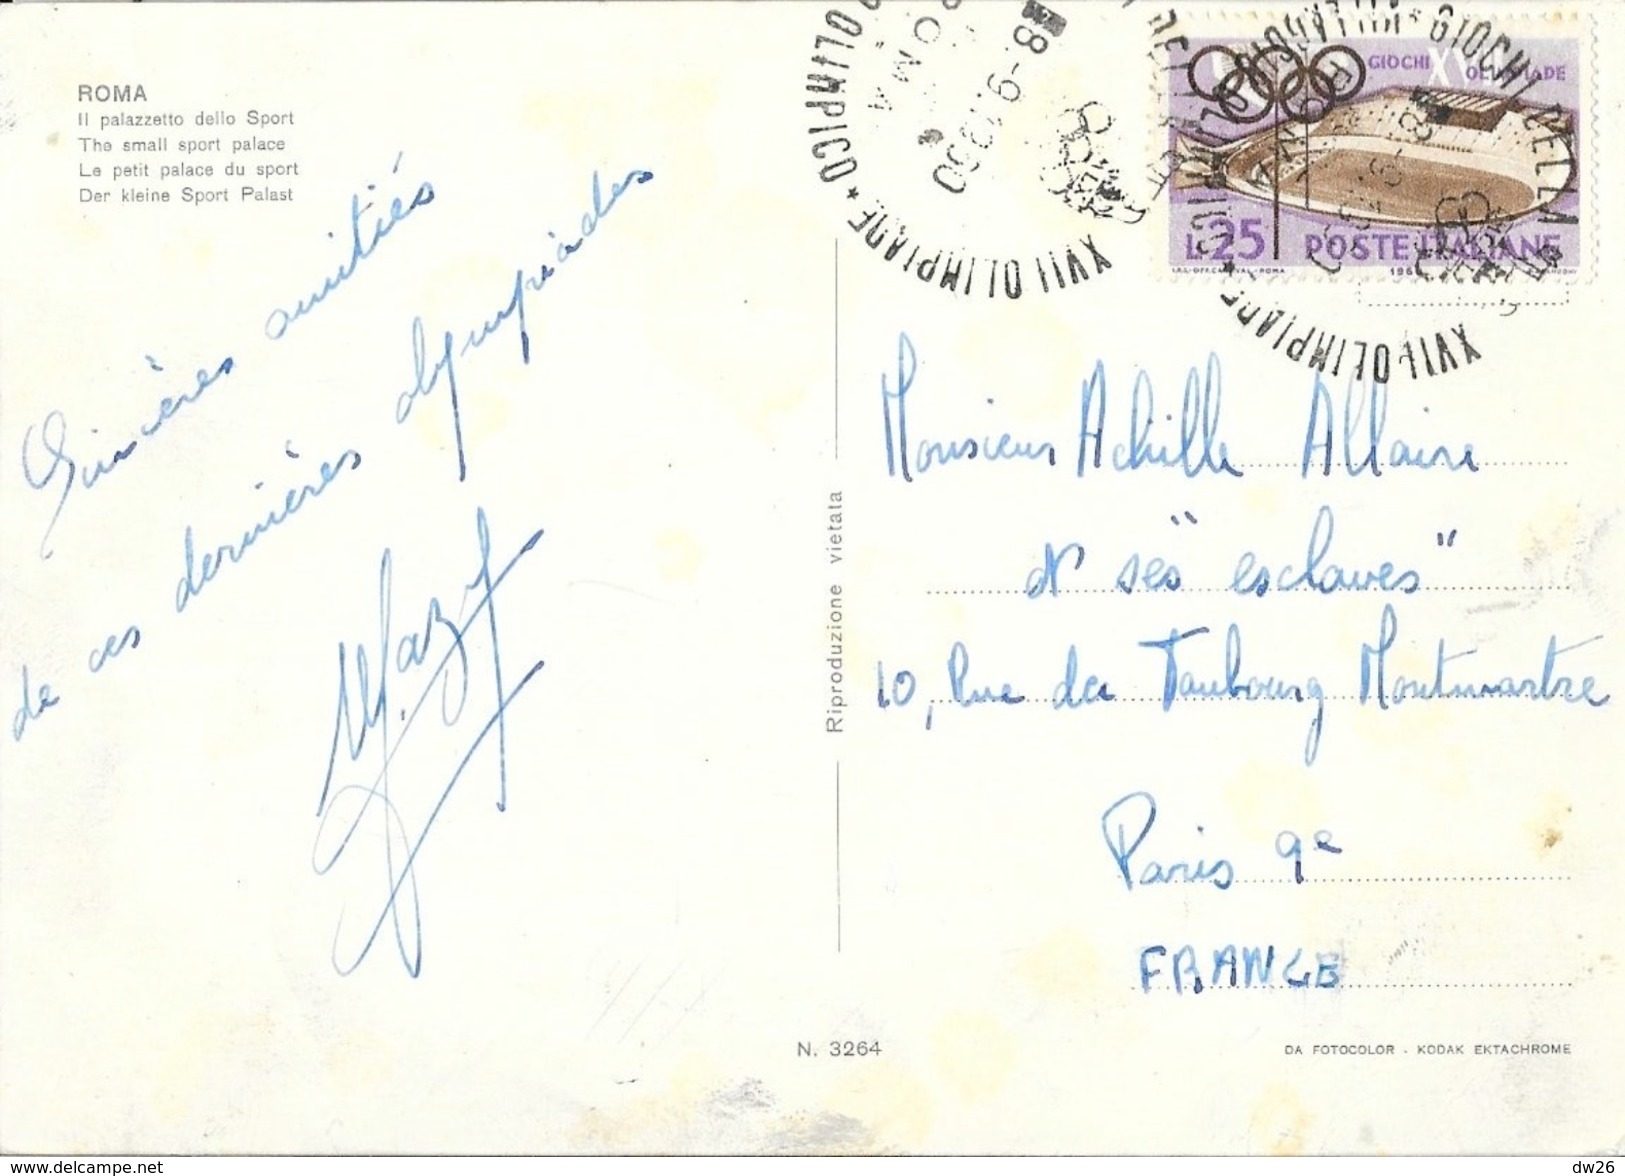 ROMA
Il palazzetto dello Sport
The small sport palace
Le petit palace du sport
Der kleine Sport Palast
Sincères amitiés
de ces dernières olympiades
Riproduzione vietata
N. 3264
GIOCHI XVII OLIMPIADE
L. 25 POSTE ITALIANE
I.P.S. OFF. CARVAL. - ROMA
XVII OLIMPIADE *
XVII OLIMPIADE *
GIOCHI DELLA
ROMA
Monsieur Achille Allaire
& ses "esclaves"
10, Rue du Faubourg Montmartre
Paris 9e
FRANCE
DA FOTOCOLOR - KODAK EKTACHROME
dw26